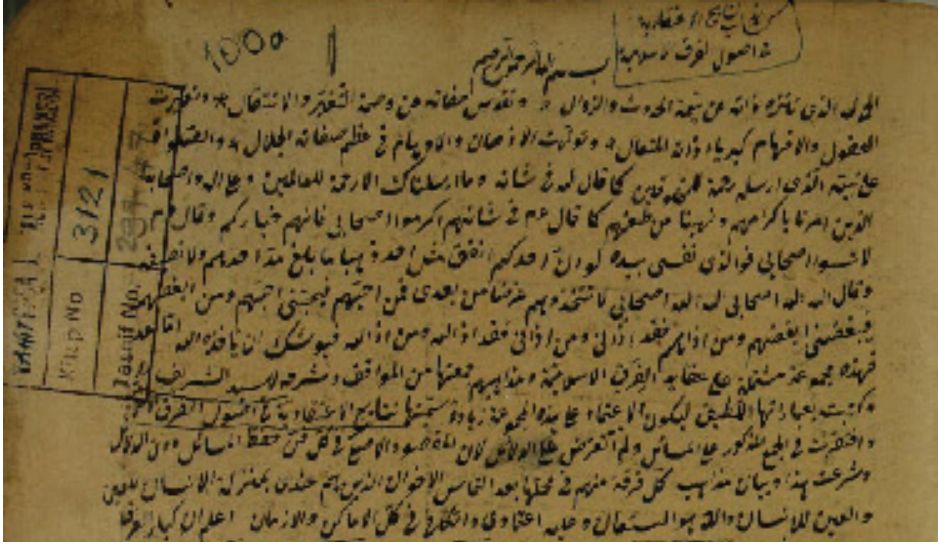 نتايج الاعتقادية
فى اصول الفرق الاسلامية
100a
بسم الله الرحمن الرحيم
الحمد لله الذى تنزه ذاته عن تهمة الحدوث والزوال وتقدس صفاته عن وصمة التغير والانتقال وتحيرت
العقول والافهام كبرياء ذاته المتعال وتولهت الاذهان والاوهام فى عظم صفاته الجلال والصلوة
على نبيه الذى ارسله رحمة كما قال له فى شانه وما ارسلناك الا رحمة للعالمين وعلى اله واصحابه
الذين امرنا باكرامهم ونهينا من طعنهم كما قال عم فى شانهم اكرموا اصحابى فانهم خياركم وقال عم
لا تسبوا اصحابى فوالذى نفسى بيده لو ان احدكم انفق مثل احد ذهبا ما بلغ مد احدهم ولا نصيفه
وقال الله الله اصحابى الله الله اصحابى لا تتخذوهم غرضا من بعدى فمن احبهم فبحبى احبهم ومن ابغضهم
فببغضى ابغضهم ومن اذاهم فقد اذانى ومن اذانى فقد اذى الله ومن اذى الله فيوشك ان ياخذه الله اما بعد
فهذه مجموعة مشتملة على عقايد الفرق الاسلامية ومذاهبهم جمعتها من المواقف وشرحه للسيد الشريف
وكتبت بعباراتها ليكون الاعتماد على هذه المجموعة زيادة وسميتها نتايج الاعتقادية فى اصول الفرق
واقتصرت فى الجمع المذكور على المسائل ولم اتعرض على الدلائل لان المقصود فى كل فن حفظ المسائل دون الدلائل
وشرعت هذا وبيان مذاهب كل فرقة منهم فى محلها بعد التماس الاخوان الذين هم عندى بمنزلة الانسان للعين
والعين للانسان والله هو المستعان وعليه اعتمادى فى كل الاماكن والازمان اعلم ان كبار
Kitap No 3121
Tasnif No. 297.4